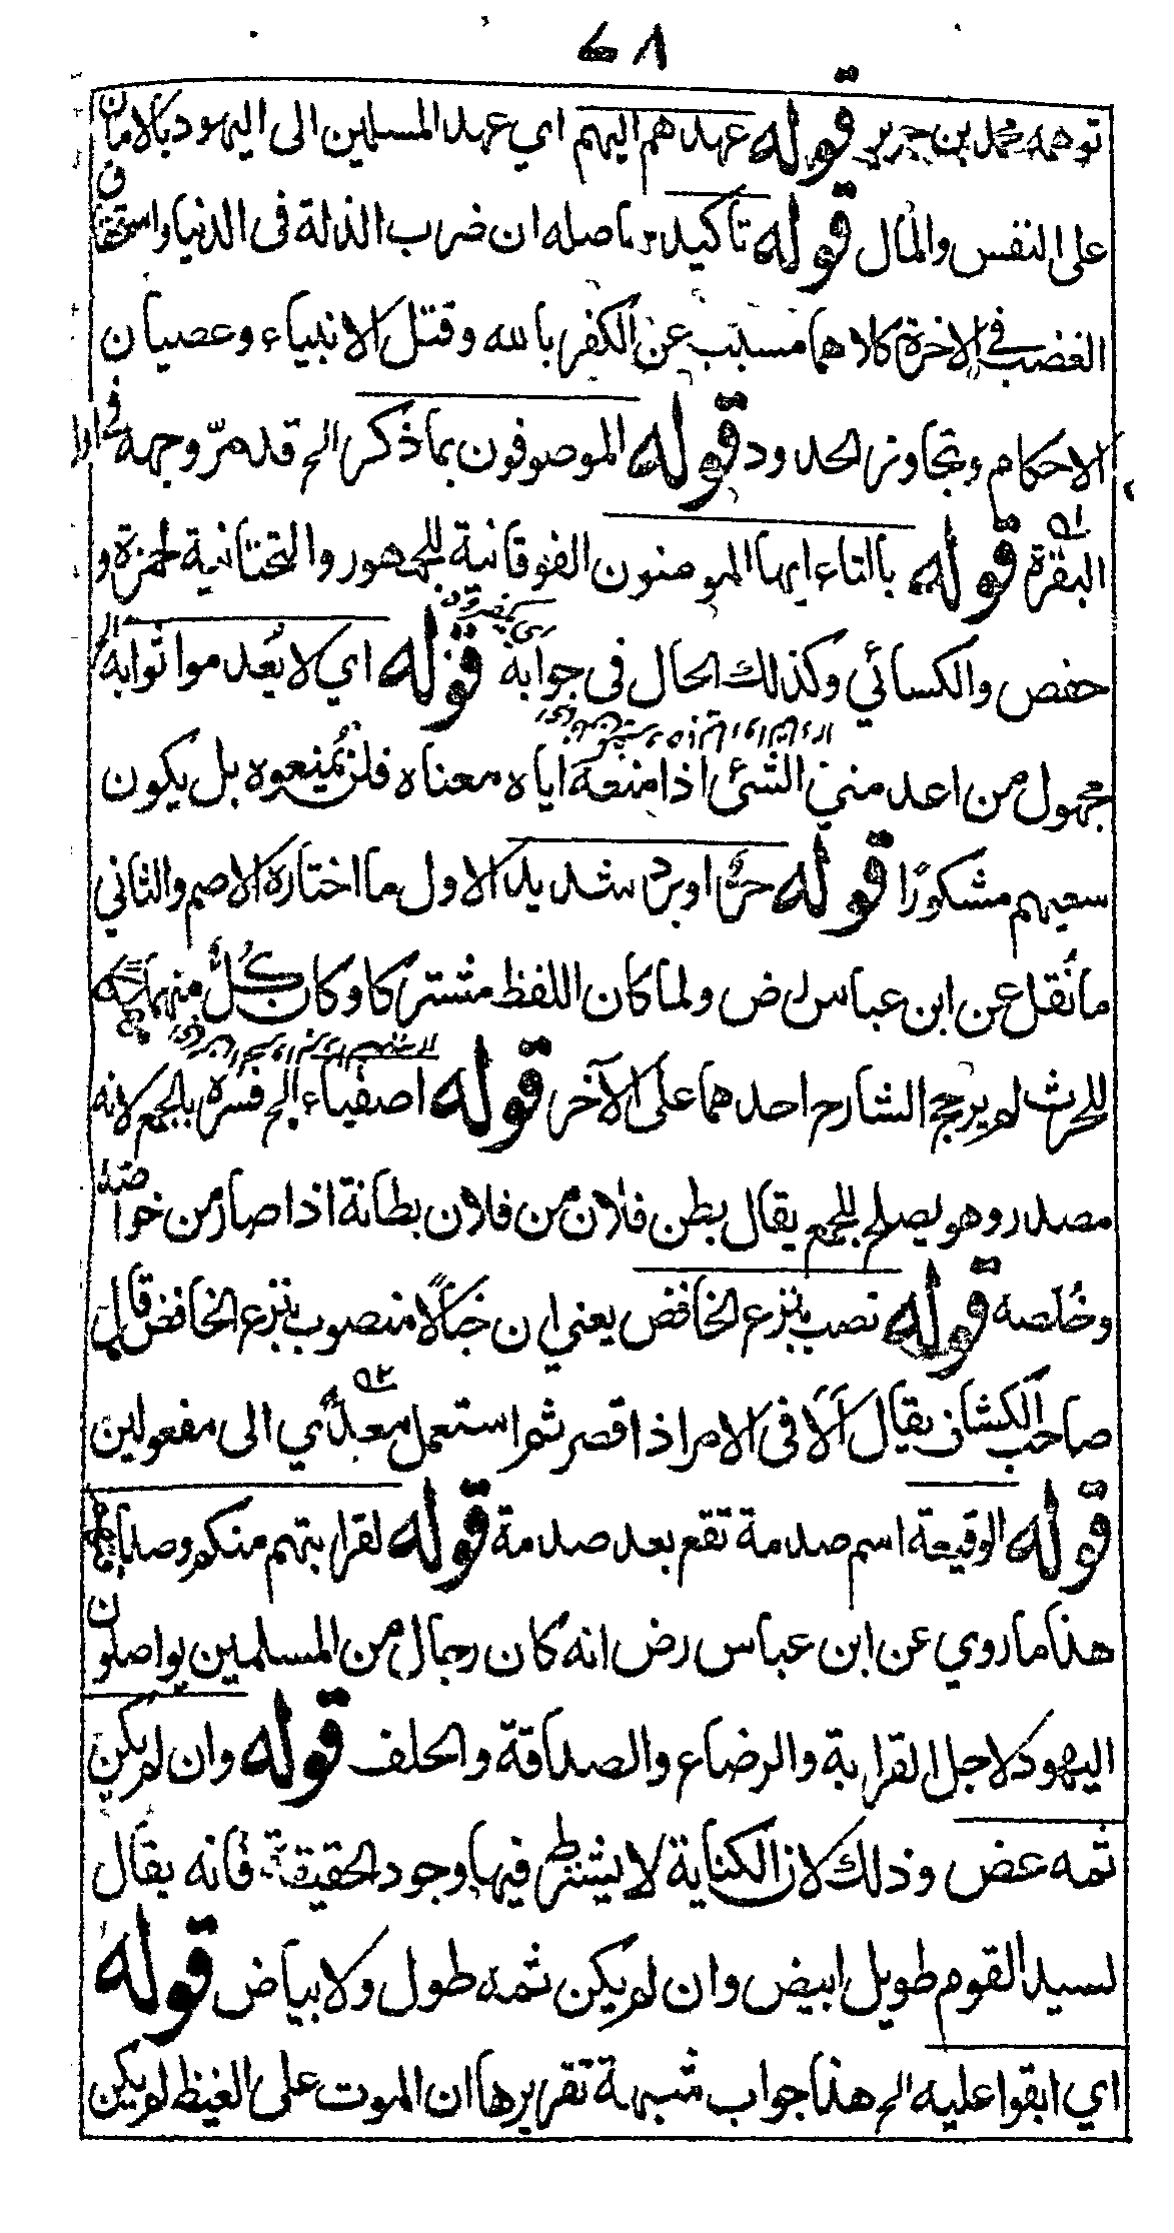 ٤٨
توهمه محمد بن جرير قوله عهدهم اليهم اي عهد المسلمين الى اليهود بالامان
على النفس والمال قوله تاكيد حاصله ان ضرب الذلة فى الدنيا واستحقاق
الغضب فى الاخرة كلاهما مسبب عن الكفر بالله وقتل الانبياء وعصيان
الاحكام وتجاوز الحدود قوله الموصوفون بما ذكر الخ قد مرّ وجهه فى
البقرة قوله بالتاء ايها المومنون الفوقانية للجمهور والتحتانية لحمزة و
حفص والكسائي وكذلك الحال فى جوابه قوله اي لا يُعدموا ثوابه الخ
مجهول من اعدمني الشئ اذا منعه اياه معناه فلن يُمنعوه بل يكون
سعيهم مشكورًا قوله حرٌّ او برد شديد الاول ما اختاره الاصم والثاني
ما نُقل عن ابن عباس رض ولما كان اللفظ مشتركا وكان كُلٌّ منهما
للحرث لم يرجح الشارح احدهما على الآخر قوله اصفياء الخ فسره بالجمع لانه
مصدر وهو يصلح للجمع يقال بطن فلان من فلان بطانة اذا صار من خواصه
وخُلصه قوله نصب بنزع الخافض يعني ان خبالًا منصوب بنزع الخافض قال
صاحب الكشاف يقال اَلَا فى الامر اذا قصر ثم استعمل معدّي الى مفعولين
قوله الوقيعة اسم صدمة تقع بعد صدمة قوله لقرابتهم منكم وصداقتهم
هذا ما روي عن ابن عباس رض انه كان رجال من المسلمين يواصلون
اليهود لاجل القرابة والرضاع والصداقة والحلف قوله وان لم يكن
ثمه عض وذلك لان الكناية لا يشترط فيها وجود الحقيقة فانه يقال
لسيد القوم طويل ابيض وان لم يكن ثمه طول ولا بياض قوله
اي ابقوا عليه الخ هذا جواب شبهة تقريرها ان الموت على الغيظ لم يكن